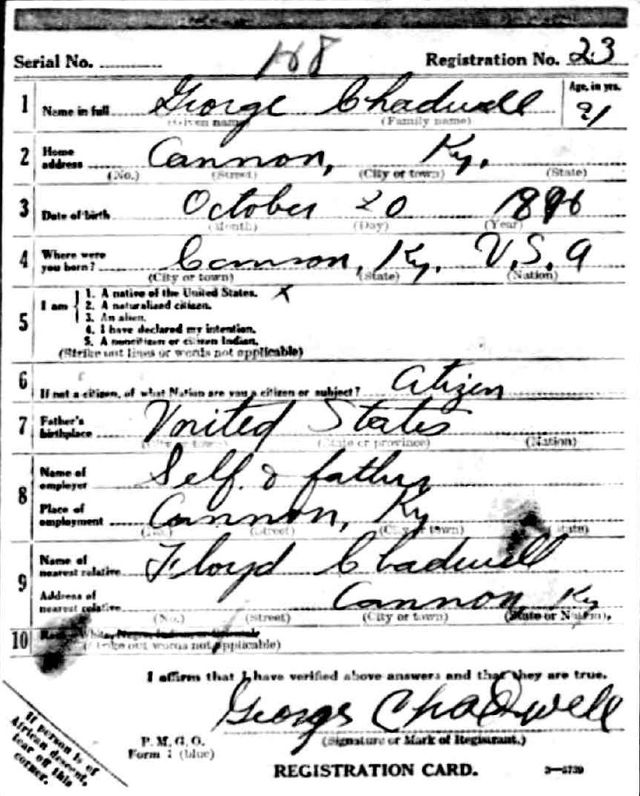 Serial No. 168 Registration No. 23
1 Name in full George Chadwell Age, in yrs.
(Given name) (Family name) 21
2 Home address Cannon, Ky.
(No.) (Street) (City or town) (State)
3 Date of birth October 20 1896
(Month) (Day) (Year)
4 Where were you born? Cannon, Ky. U.S.A
(City or town) (State) (Nation)
5 I am
1. A native of the United States. X
2. A naturalized citizen.
3. An alien.
4. I have declared my intention.
5. A noncitizen or citizen Indian.
(Strike out lines or words not applicable)
6 If not a citizen, of what Nation are you a citizen or subject? Citizen
7 Father's birthplace United States
(City or town) (State or province) (Nation)
8 Name of employer Self & father
Place of employment Cannon, Ky
(No.) (Street) (City or town) (State)
9 Name of nearest relative Floyd Chadwell
Address of nearest relative Cannon, Ky
(No.) (Street) (City or town) (State or Nation)
10 Race—White, Negro, Indian, or Oriental
(Strike out words not applicable)
I affirm that I have verified above answers and that they are true.
George Chadwell
P. M. G. O.
Form 1 (blue)
(Signature or Mark of Registrant.)
If person is of
African descent,
tear off this
corner.
REGISTRATION CARD. 3—5739